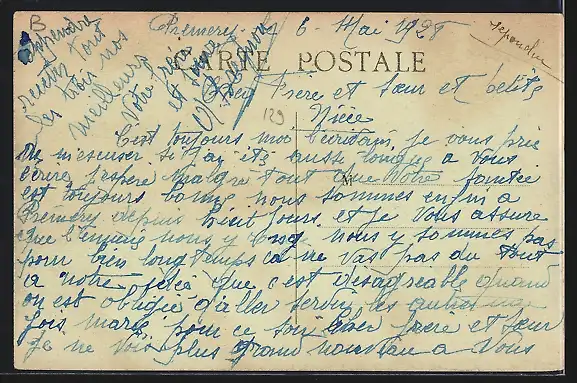 B
Premery 6 Mai 1928
repondu
CARTE POSTALE
Cher Frère et Sœur et petite
Nièce
129
C'est toujours moi l'écrivain, je vous prie
de m'excuser si j'ai été aussi longue a vous
écrire j'espère malgré tout que votre santée
est toujours bonne, nous sommes enfin a
Premery depuis huit jours et je vous assure
que l'ennuie nous y nous y sommes pas
pour bien longtemps ca ne vas pas du tout
a notre que c'est desagreable quand
on est obligée d'aller servir les autres
fois pour ce soir Cher frère et sœur
je ne vois plus grand nouveau a vous
apprendre
recevez tout
les trois nos
meilleurs
Votre
et
M